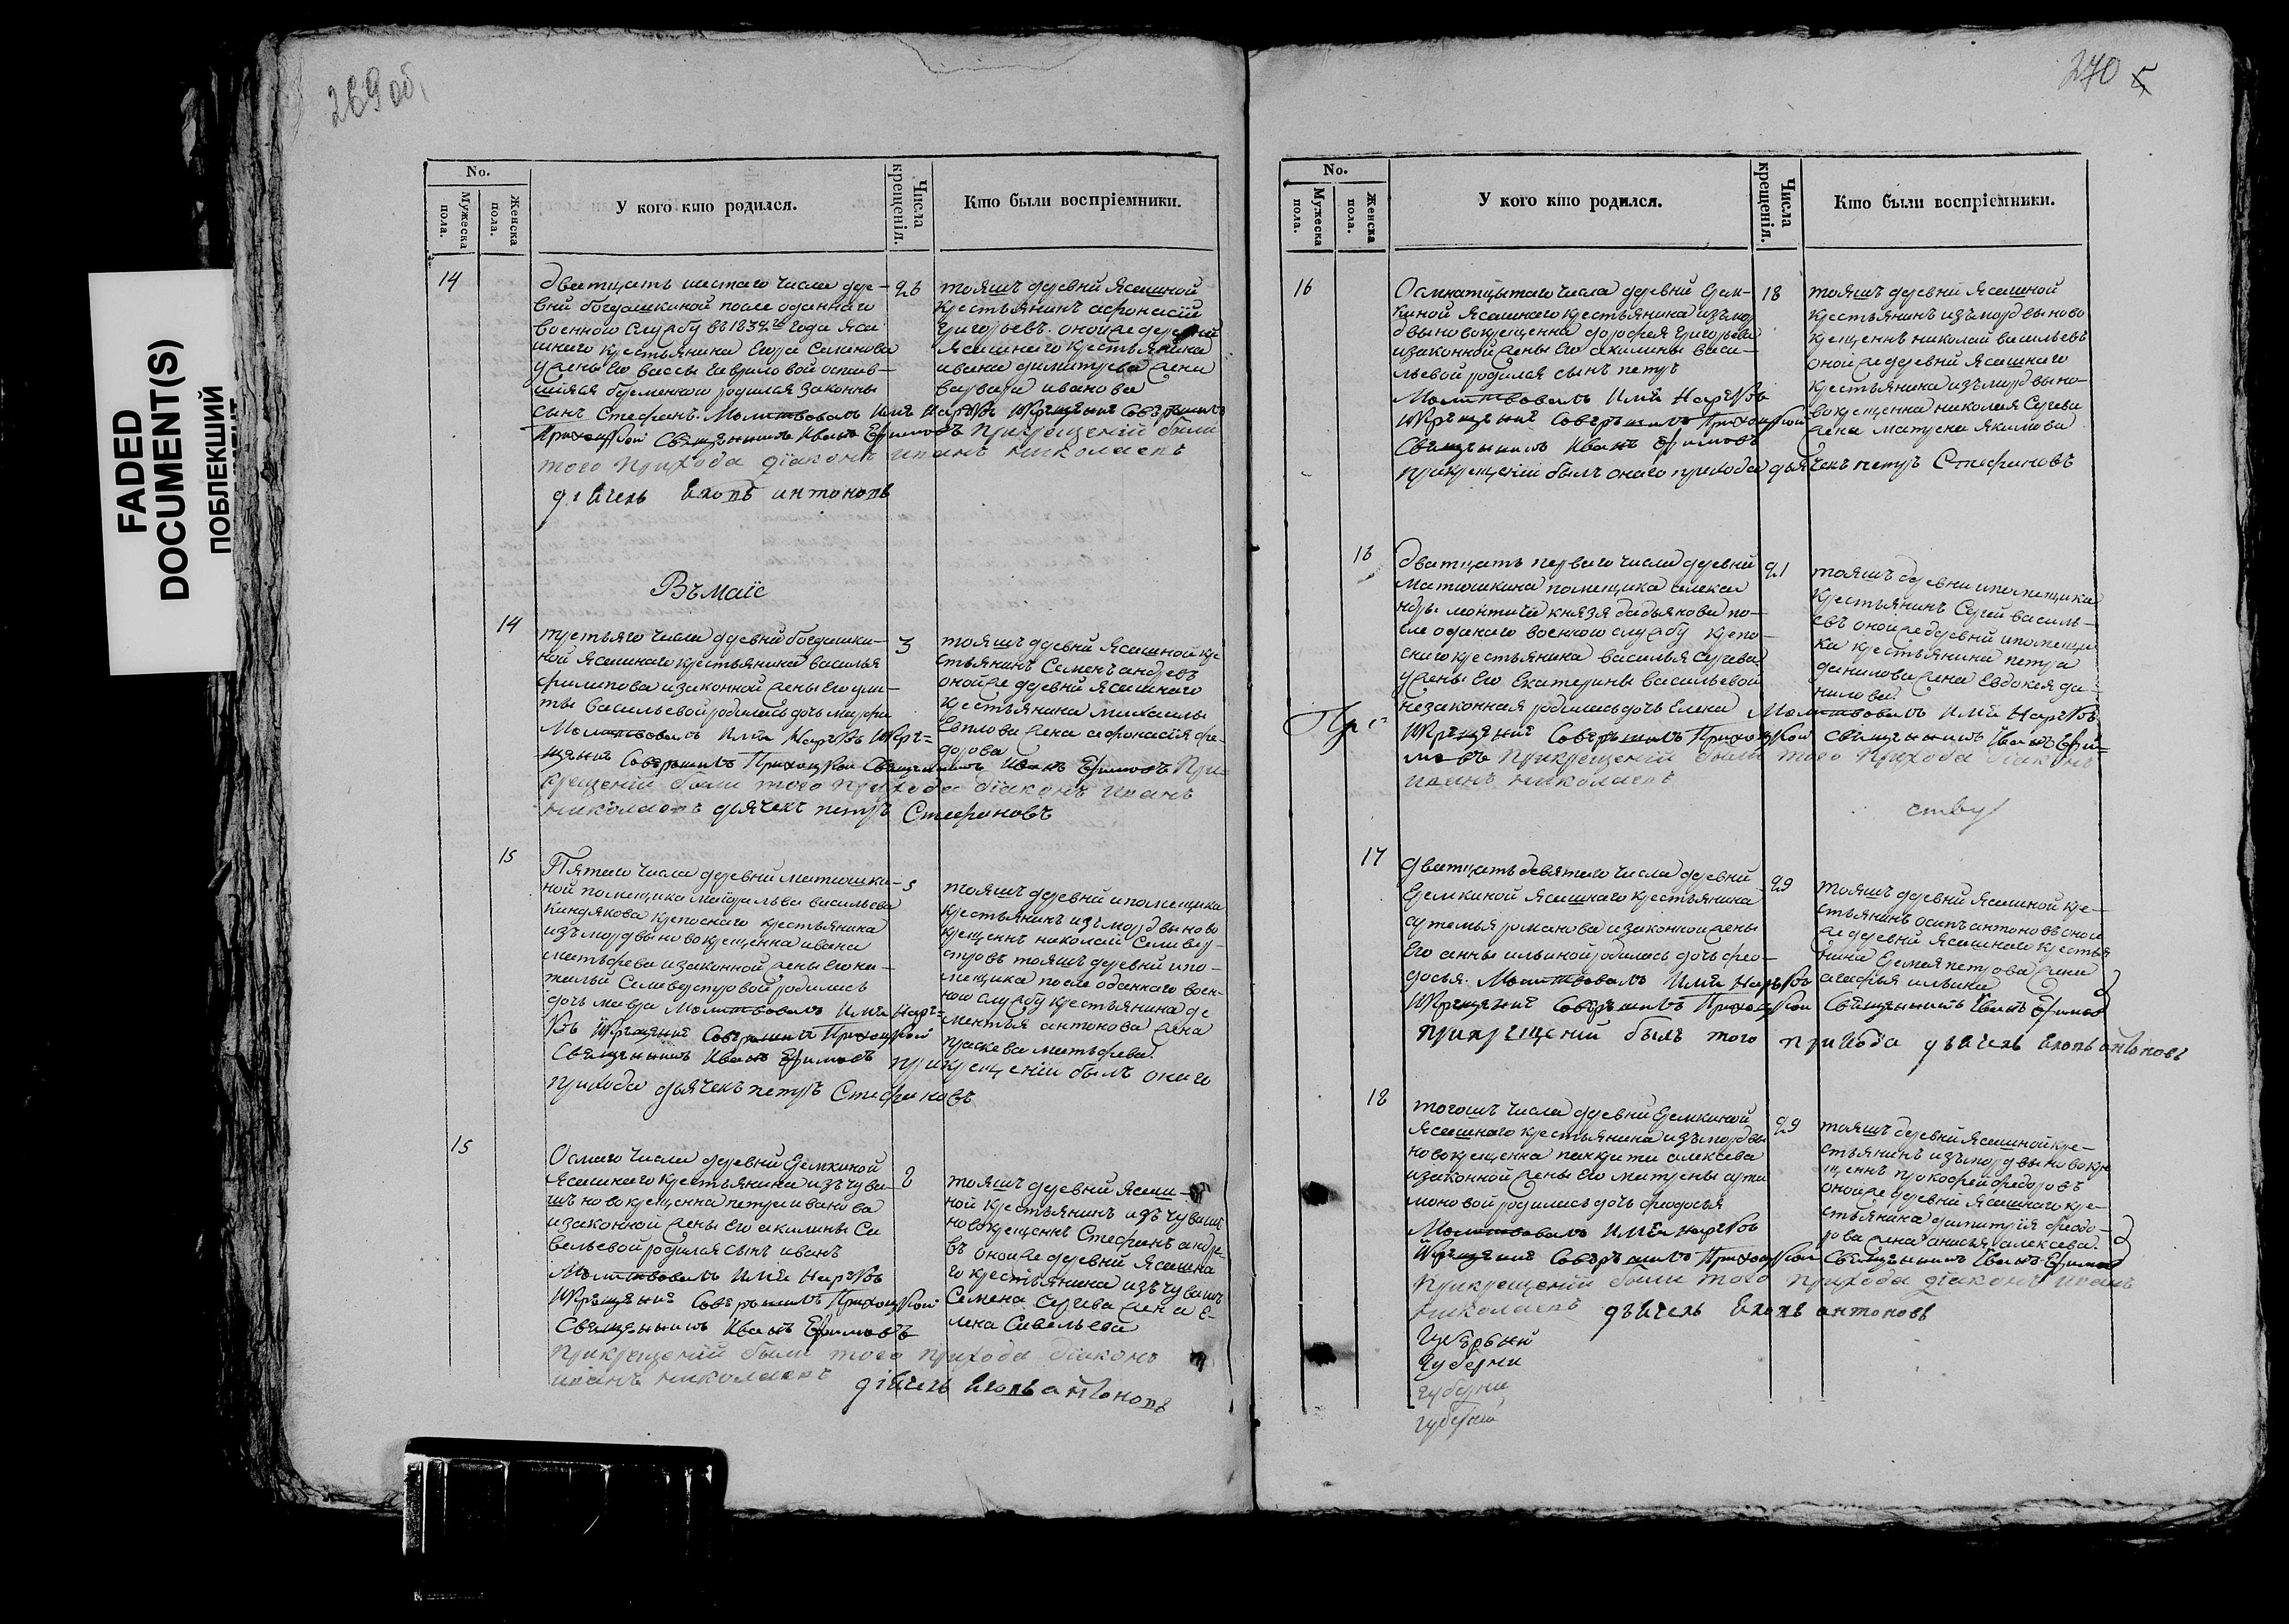 269 об.
FADED
DOCUMENT(S)
ПОБЛЕКШИЙ
No.
Мужеска пола.
Женска пола.
У кого кто родился.
Числа крещенія.
Кто были воспріемники.
14
дватцать шестаго числа дере-
вни богдашкиной после оданнаго
военного службу въ 1834 го года яса
шнаго крестьянина Егора Семенова
у жены Его вассы гавриловой остав-
шейся беременною родился законны
сынъ Стефанъ. Молитвовалъ Имя Нарѣкъ Икрѣщение Совѣршилъ
Приходской Священникъ Иванъ Ефимовъ Прикрещеніи были
того Прихода діаконъ иванъ николаевъ
діячекъ яковъ антоновъ
26
тояшъ деревни Ясашной
крестьянинъ афонасій
григорьевъ. оной же деревни
ясашнаго крестьянина
ивана димитрева жена
варвара иванова
Въ маїе
14
третьяго числа деревни богдашки-
ной ясашнаго крестьянина василья
филипова изаконной жены Его ули-
ты васильевой родилась дочь марфа
Молитвовалъ Имя Нарѣкъ Икрѣ-
щение Совѣршилъ Приходской Священникъ Иванъ Ефимовъ При-
крещеніи были того прихода діаконъ иванъ
николаевъ дьячекъ петръ Стефановъ
3
тояшъ деревни Ясашной кре
стьянинъ Семенъ андревъ
оной же деревни Ясашнаго
крестьянина михаилы
Евплова жена афонасія фе-
дорова
15
Пятаго числа деревни матюшки-
ной помещика маіора льва васильева
киндякова крепоснаго крестьянина
изъ мордвы новокрещенна ивана
матьфева изаконной жены Его на-
тальи Селиверстровой родилась
дочь мавра Молитвовалъ Имя Нарѣ-
къ Икрѣщение Совѣршилъ Приходской
Священникъ Иванъ Ефимовъ прикрещеніи былъ онаго
прихода дьячекъ петръ Стефановъ
5
тояшъ деревни ипомещика
крестьянинъ изъ мордвы ново
крещеннъ николай Селивер-
стровъ тояшъ деревни ипо-
мещика после оданнаго воен-
ною службу крестьянина де
ментья антонова жена
праскева матьфева.
15
Осмаго числа деревни Еремкиной
Ясашнаго крестьянина изъ чува-
шъ новокрещенна петра иванова
изаконной жены Его акилины Са
вельевой родился сынъ иванъ
Молитвовалъ Имя Нарѣкъ
Икрѣщение Совѣршилъ Приходской
Священникъ Иванъ Ефимовъ
Прикрещеніи были того прихода діаконъ
иванъ николаевъ діячекъ яковъ антоновъ
8
тояшъ деревни Ясаш-
ной крестьянинъ изъ чувашъ
новокрещеннъ Стефанъ андре-
въ оной же деревни Ясашна
го крестьянина изъ чувашъ
Семена Сергева жена Е-
лена Савельева
270
No.
Мужеска пола.
Женска пола.
У кого кто родился.
Числа крещенія.
Кто были воспріемники.
16
Осмнатцытаго числа деревни Ерем-
киной Ясашнаго крестьянина изъ мор
двы новокрещенна дорофея григорьева
изаконной жены Его акилины васи-
льевой родился сынъ петръ
Молитвовалъ Имя Нарѣкъ
Икрѣщение Совѣршилъ Приходской
Священникъ Иванъ Ефимовъ
прикрещеніи былъ онаго прихода дьячекъ петръ Стефановъ
18
тояшъ деревни Ясашной
крестьянинъ изъ мордвы ново
крещеннъ николай васильевъ
оной же деревни Ясашнаго
крестьянина изъ мордвы но-
вокрещенна николая Сергева
жена матрена якимова
16
дватцать перваго числа деревни
матюшкина помещика алекса
ндры леонтича князя дадьянова по-
сле оданаго военною службу крепо-
снаго крестьянина василья Сергева
у жены Его Екатерины васильевой
незаконная родилась дочь Елена Молитвовалъ Имя Нарѣкъ
Икрѣщение Совѣршилъ Приходской Священникъ Иванъ Ефи-
мовъ Прикрещеніи были того Прихода діаконъ
иванъ николаевъ
21
тояшъ деревни ипомещика
крестьянинъ Сергей василь-
евъ оной же деревни ипомещи
ка крестьянина петра
данилова жена Евдокея да-
нилова.
Пр
ству
17
дватцать девятаго числа деревни
Еремкиной Ясашнаго крестьянина
артемья романова изаконной жены
Его анны ильиной родилась дочь фео-
досья. Молитвовалъ Имя Нарѣкъ
Икрѣщение Совѣршилъ Приходской Священникъ Иванъ Ефимовъ
прикрещеніи былъ того прихода дьячекъ яковъ антоновъ
29
тояшъ деревни Ясашной кре-
стьянинъ осипъ антоновъ оной
же деревни Ясашнаго крестья
нина Еремея петрова жена
агафья ильина
18
тогошъ числа деревни Еремкиной
Ясашнаго крестьянина изъ мордвы
новокрещенна никити алексева
изаконной жены Его матрены арта
моновой родилась дочь феодосья
Молитвовалъ Имя нарѣкъ
Икрѣщение Совѣршилъ Приходской Священникъ Иванъ Ефимовъ
Прикрещеніи были того прихода діаконъ иванъ
николаевъ дьячекъ яковъ антоновъ
29
тояшъ деревни Ясашной кре-
стьянинъ изъ мордвы новокре
щеннъ прокофей федоровъ
оной же деревни Ясашнаго кре-
стьянина димитрія федо-
рова жена анисья алексева.
Губерьни
Губерни
губерни
губерни